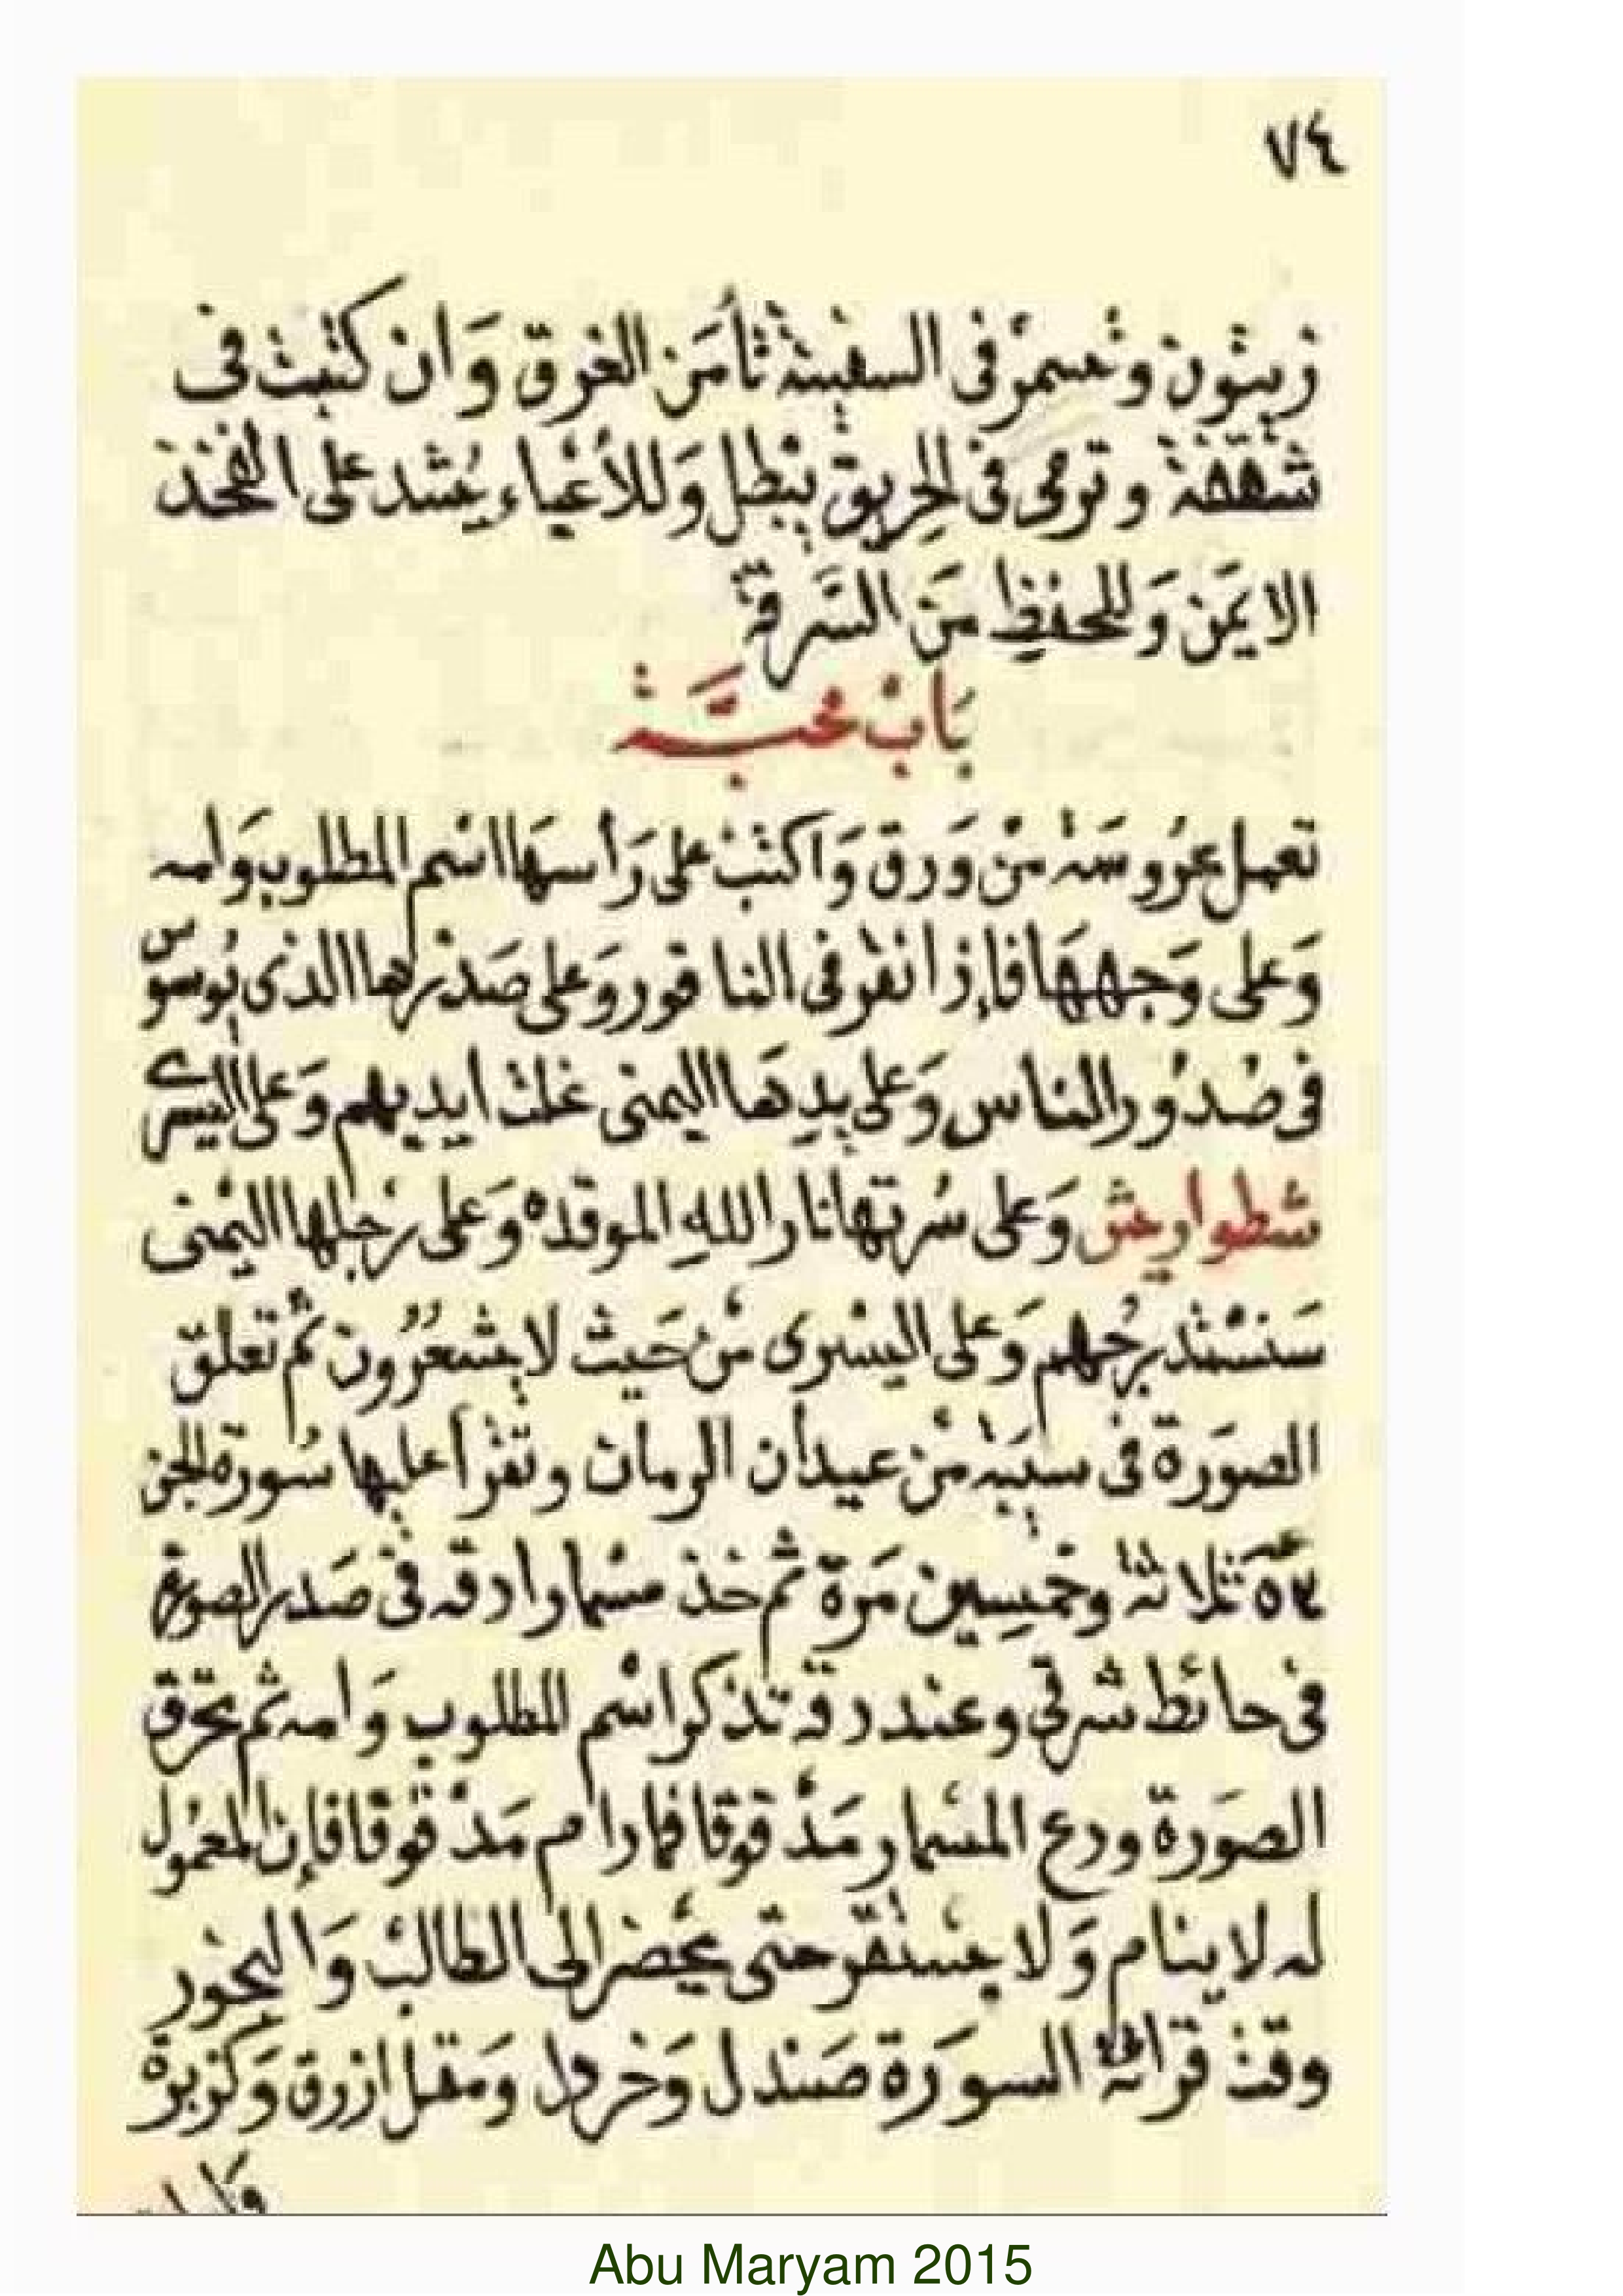 ٧٤
زيتون وتسمر فى السفينة تأمن الغرق وان كتبت فى
شقفة وترمى فى الحريق يبطل وللأعياء يشد على الفخذ
الايمن وللحفظ من السرقة
باب محبة
تعمل عروسة من ورق واكتب على رأسها اسم المطلوب وامه
وعلى وجهها فإذا نقر فى الناقور وعلى صدرها الذى يوسوس
فى صدور الناس وعلى يدها اليمنى غلت ايديهم وعلى اليسرى
شطوايش وعلى سرتها نار الله الموقده وعلى رجلها اليمنى
سنستدرجهم وعلى اليسرى من حيث لا يشعرون ثم تعلق
الصورة فى سيبه من عيدان الرمان وتقرأ عليها سورة الجن
ثلاثة وخمسين مرة ثم خذ مسمارا دقه فى صدر الصورة
فى حائط شرقى وعند دقه تذكر اسم المطلوب وامه ثم تحرق
الصورة ودع المسمار مدقوقا فما دام مدقوقا فإن المعمول
له لا ينام ولا يستقر حتى يحضر الى الطالب والبخور
وقت قرائة السورة صندل وخردل ومقل ازرق وكزبرة
Abu Maryam 2015